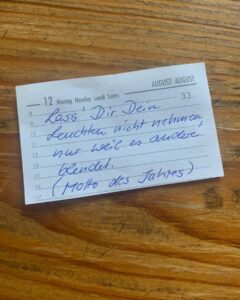 12 Montag Monday Lundi Lunes
AUGUST·AUGUST
33.
8
9
10
11
12
13
14
15
16
17
Lass' Dir Dein
Leuchten nicht nehmen,
nur weil es andere
blendet.
(Motto des Jahres)